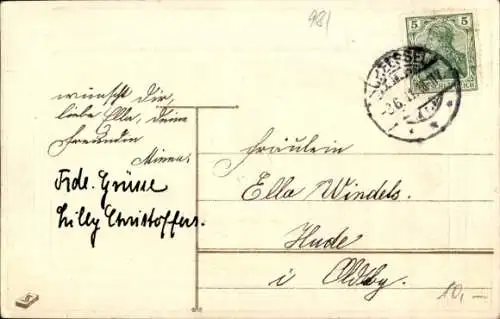 981
5
5
wünscht Dir,
liebe Ella, deine
Freundin
Minna.
Frdl. Grüsse
Lilly Christoffers.
Fräulein
Ella Windels.
Hude
i Oldbg.
10,-